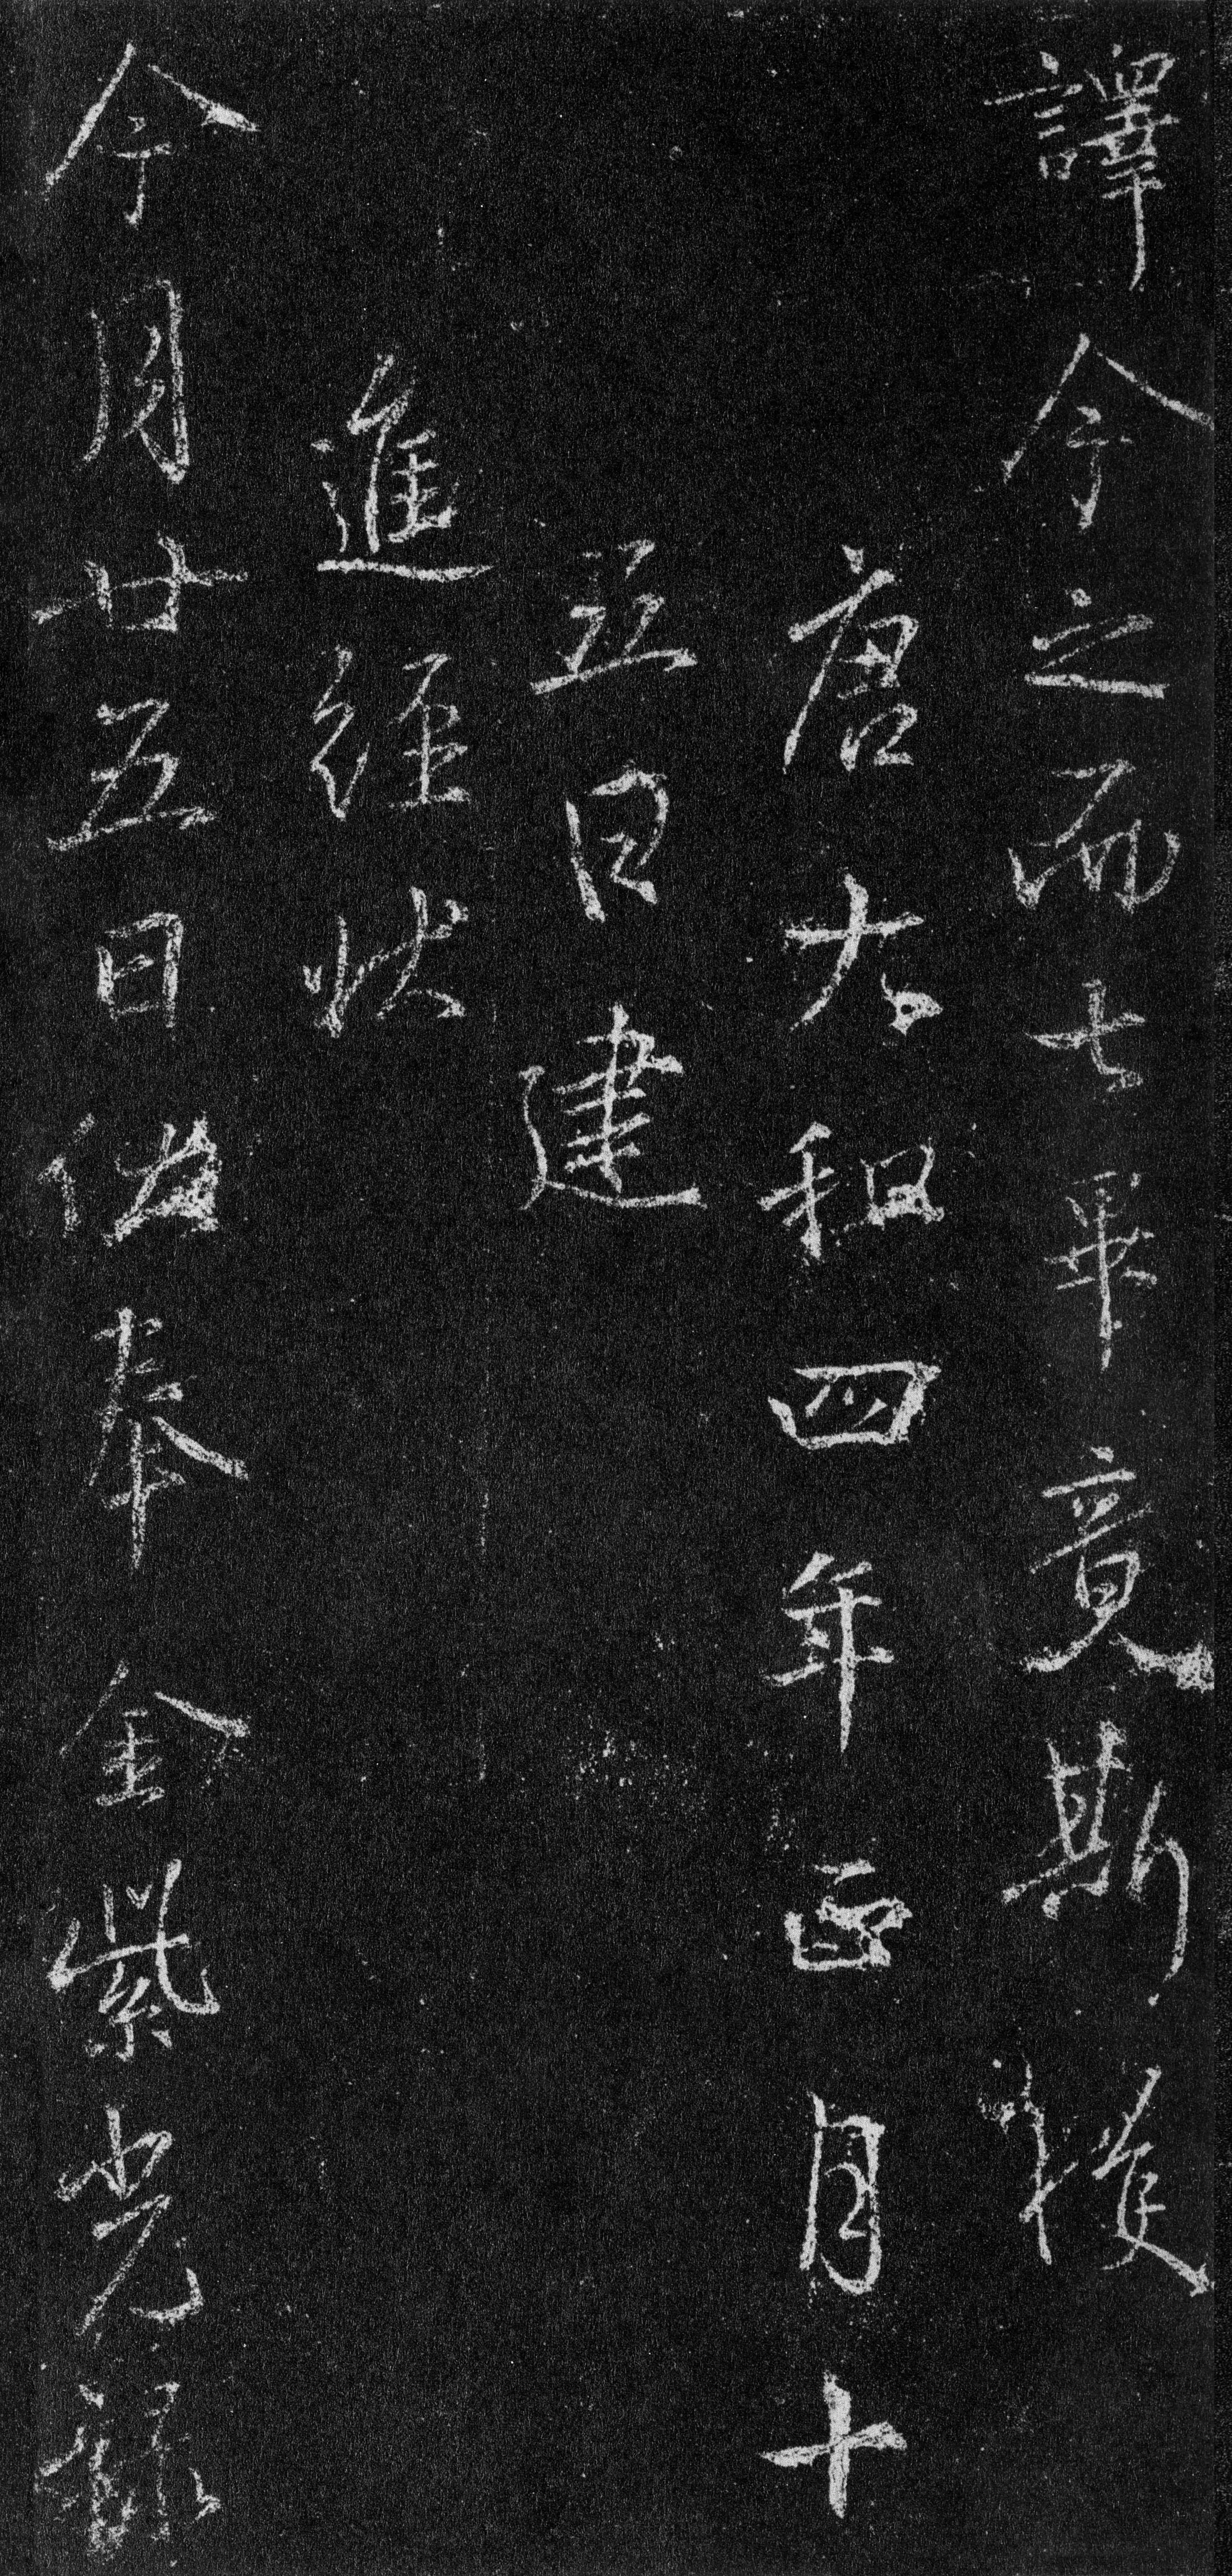 譯令之而七軍竟斯獲
唐太和四年正月十
五日建
進經狀
今月廿五日伏奉金紫光祿